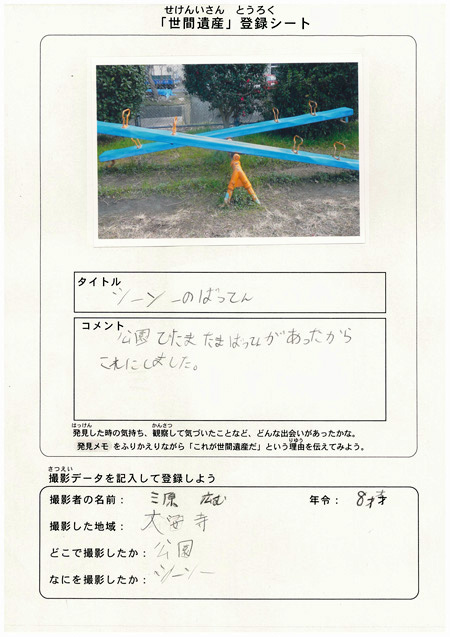 せけんいさん とうろく
「世間遺産」登録シート
タイトル
シーソーのばってん
コメント
公園でたまたまばってんがあったから
これにしました。
はっけん かんさつ
発見した時の気持ち、観察して気づいたことなど、どんな出会いがあったかな。
りゆう
発見メモ をふりかえりながら「これが世間遺産だ」という理由を伝えてみよう。
さつえい
撮影データを記入して登録しよう
撮影者の名前： 三原 年令： 8才
撮影した地域： 大安寺
どこで撮影したか： 公園
なにを撮影したか： シーソー